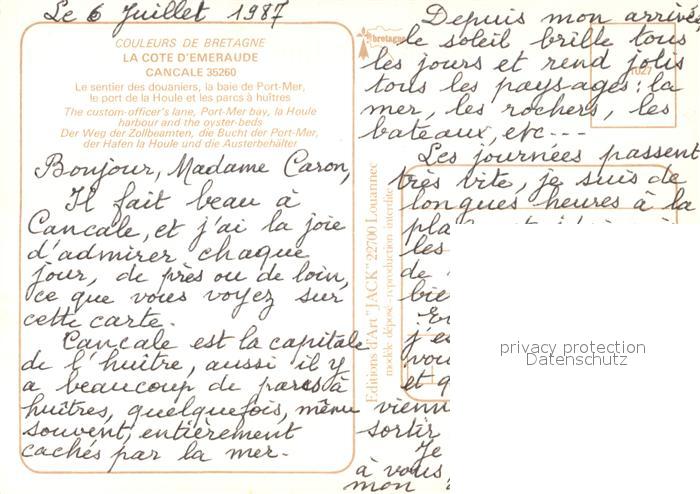 Le 6 Juillet 1987
COULEURS DE BRETAGNE
LA COTE D'EMERAUDE
CANCALE 35260
Le sentier des douaniers, la baie de Port-Mer,
le port de la Houle et les parcs à huîtres
The custom-officer's lane, Port-Mer bay, la Houle
harbour and the oyster-beds
Der Weg der Zollbeamten, die Bucht der Port-Mer,
der Hafen la Houle und die Austerbehälter
Bonjour, Madame Caron,
Il fait beau à
Cancale, et j'ai la joie
d'admirer chaque
jour, de près ou de loin,
ce que vous voyez sur
cette carte.
Cancale est la capitale
de l'huître, aussi il y
a beaucoup de parcs à
huîtres, quelquefois, même
souvent, entièrement
cachés par la mer.
Editions d'Art "JACK" 22700 Louannec
modèle déposé - reproduction interdite
bretagne
1027
Depuis mon arrivée,
le soleil brille tous
les jours et rend jolis
tous les paysages : la
mer, les rochers, les
bateaux, etc ---
Les journées passent
très vite, je suis de
longues heures à la
les
de
bie
j'es
vou
et q
vienn
sortir
Je
à vous
mon
privacy protection
Datenschutz